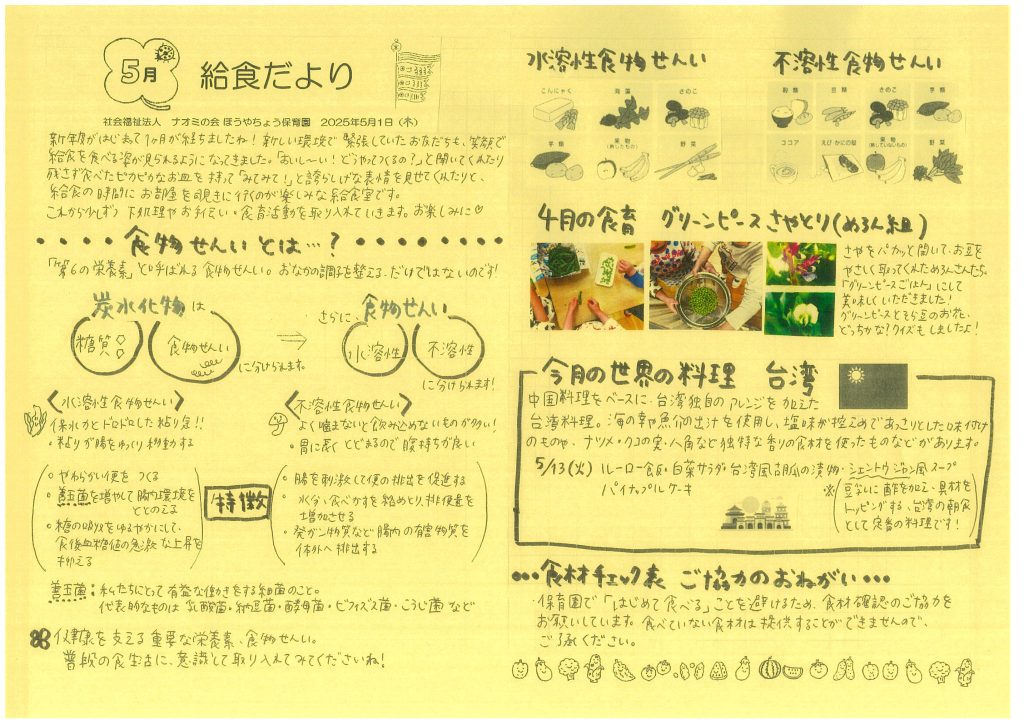 5月
給食だより
社会福祉法人 ナオミの会 ほうやちょう保育園 2025年5月1日（木）
新年度がはじまって1ヶ月が経ちましたね！新しい環境で緊張していたお友だちも、笑顔で
給食を食べる姿が見られるようになってきました。「おいし～い！どうやってつくるの？」と聞いてくれたり
残さず食べたピカピカなお皿を持って「みてみて！」と誇らしげな表情を見せてくれたりと、
給食の時間にお部屋を覗きに行くのが楽しみな給食室です。
これから少しずつ下処理やお手伝い・食育活動を取り入れていきます。お楽しみに♡
・・・・・食物せんいとは…？・・・・・・・・
「第6の栄養素」と呼ばれる食物せんい。おなかの調子を整える、だけではないのです！
炭水化物は
糖質
食物せんい
に分けられます。
⇒
さらに、食物せんい
水溶性
不溶性
に分けられます！
〈水溶性食物せんい〉
保水力とドロドロした粘り気！！
・粘りが腸をゆっくり移動する
〈不溶性食物せんい〉
よく噛まないと飲み込めないものが多い！
・胃に長くとどまるので腹持ちが良い
特徴
・やわらかい便をつくる
・善玉菌を増やして腸内環境を
ととのえる
・糖の吸収をゆるやかにして、
食後血糖値の急激な上昇を
抑える
・腸を刺激して便の排出を促進する
・水分・食べかすを絡めとり、排便量を
増加させる
・発ガン物質など腸内の有害物質を
体外へ排出する
善玉菌：私たちにとって有益な働きをする細菌のこと。
代表的なものは乳酸菌・納豆菌・酵母菌・ビフィズス菌・こうじ菌など
健康を支える重要な栄養素、食物せんい。
普段の食生活に、意識して取り入れてみてくださいね！
水溶性食物せんい
こんにゃく
海藻
きのこ
芋類
果物
（熟したもの）
野菜
不溶性食物せんい
穀類
豆類
きのこ
芋類
ココア
えび・かにの殻
果物
（熟していないもの）
野菜
4月の食育 グリーンピースさやとり（めろん組）
さやをパカッと開いて、お豆を
やさしく取ってくれためろんさんたち。
「グリーンピースごはん」にして
美味しくいただきました！
グリーンピースとそら豆のお花、
どっちかな？クイズもしましたよ！
今月の世界の料理 台湾
中国料理をベースに、台湾独自のアレンジを加えた
台湾料理。海の幸や魚介の出汁を使用し、塩味が控えめであっさりとした味付け
のものや、ナツメ・クコの実・八角など独特な香りの食材を使ったものなどがあります。
5/13（火） ルーロー飯・白菜サラダ・台湾風胡瓜の漬物・シェントウジャン風スープ
パイナップルケーキ
※豆乳に酢を加え、具材を
トッピングする、台湾の朝食
として定番の料理です！
・・・食材チェック表 ご協力のおねがい・・・
保育園で「はじめて食べる」ことを避けるため、食材確認のご協力を
お願いしています。食べていない食材は提供することができませんので、
ご了承ください。